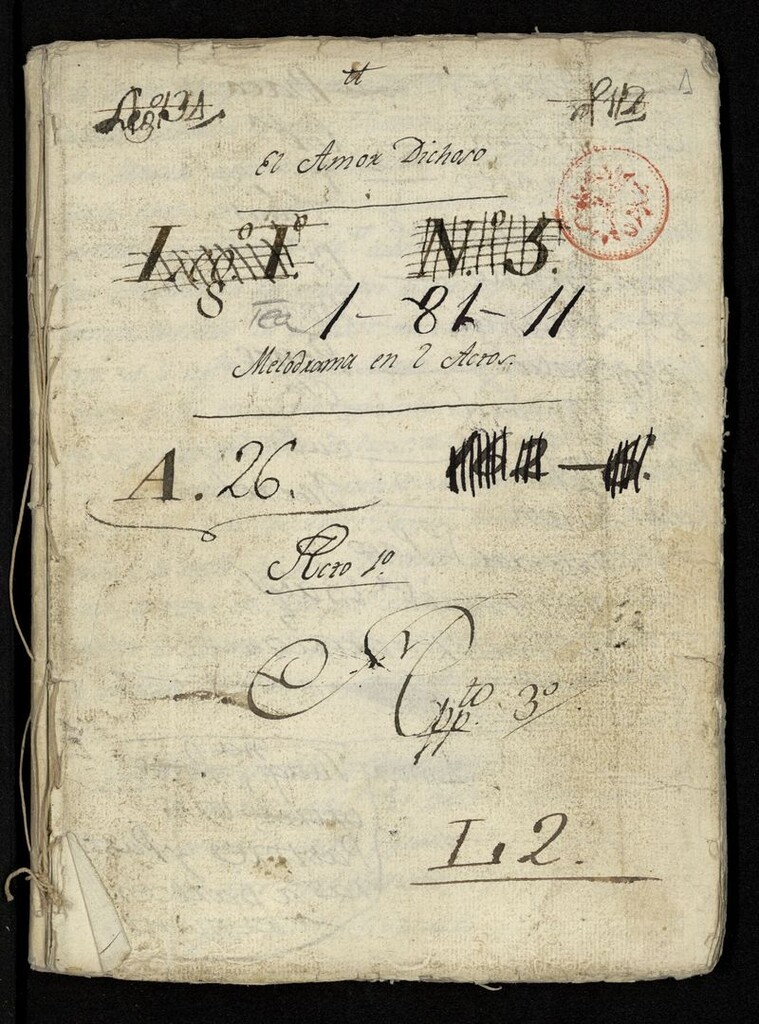 tt
Leg.º 134
El Amor Dichoso
Leg.º 1.º N.º 5.
8
Tea 1-81-11
Melodrama en 2 Actos.
A. 26.
Acto 1º
App.to 3º
L. 2.